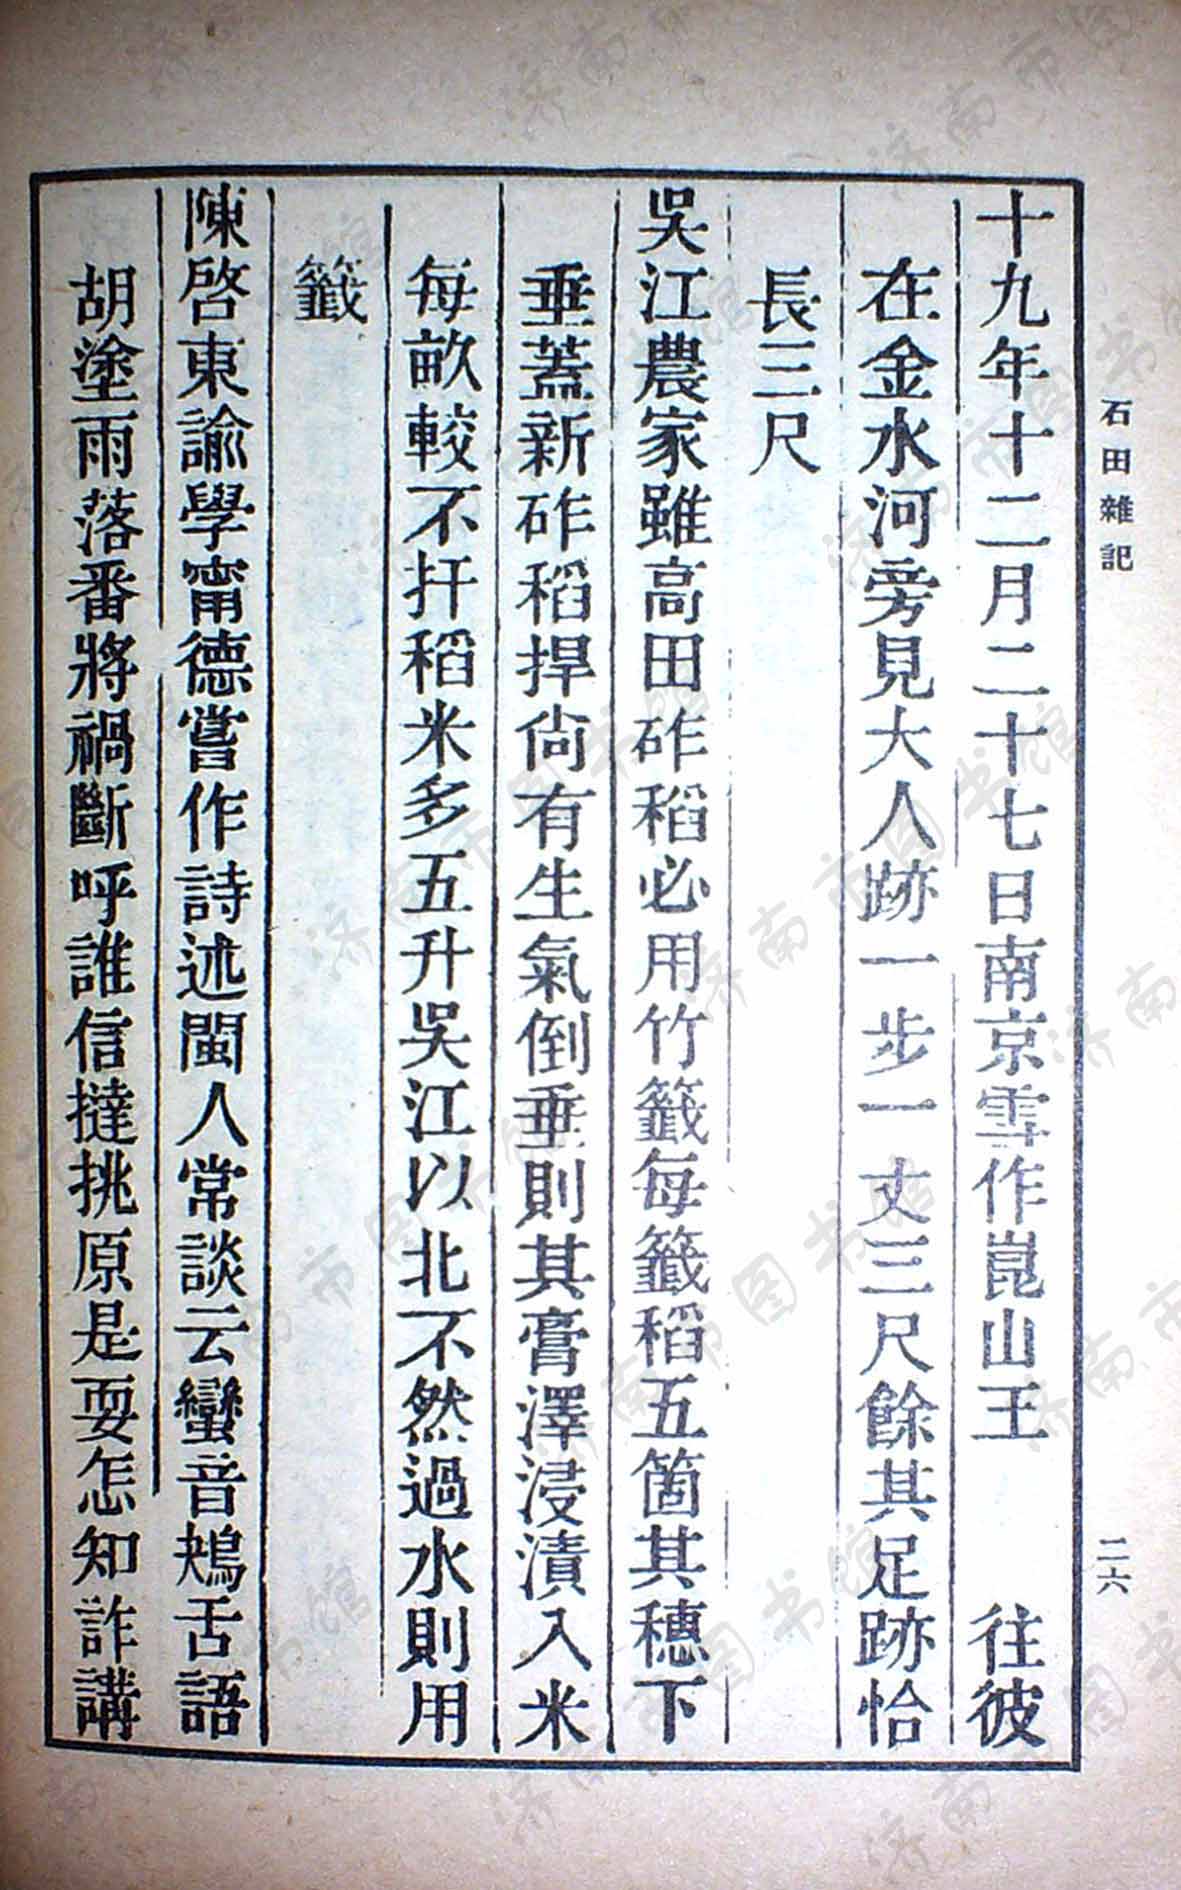 石田雜記
二六
十九年十二月二十七日南京雪作崑山王　　往彼
在金水河旁見大人跡一步一丈三尺餘其足跡恰
長三尺
吳江農家雖高田砟稻必用竹籤每籤稻五箇其穗下
垂蓋新砟稻捍尙有生氣倒垂則其膏澤浸漬入米
每畝較不扞稻米多五升吳江以北不然過水則用
籤
陳啓東諭學甯德嘗作詩述閩人常談云蠻音鴂舌語
胡塗雨落番將禍斷呼誰信撻挑原是耍怎知詐講
济南市图书馆